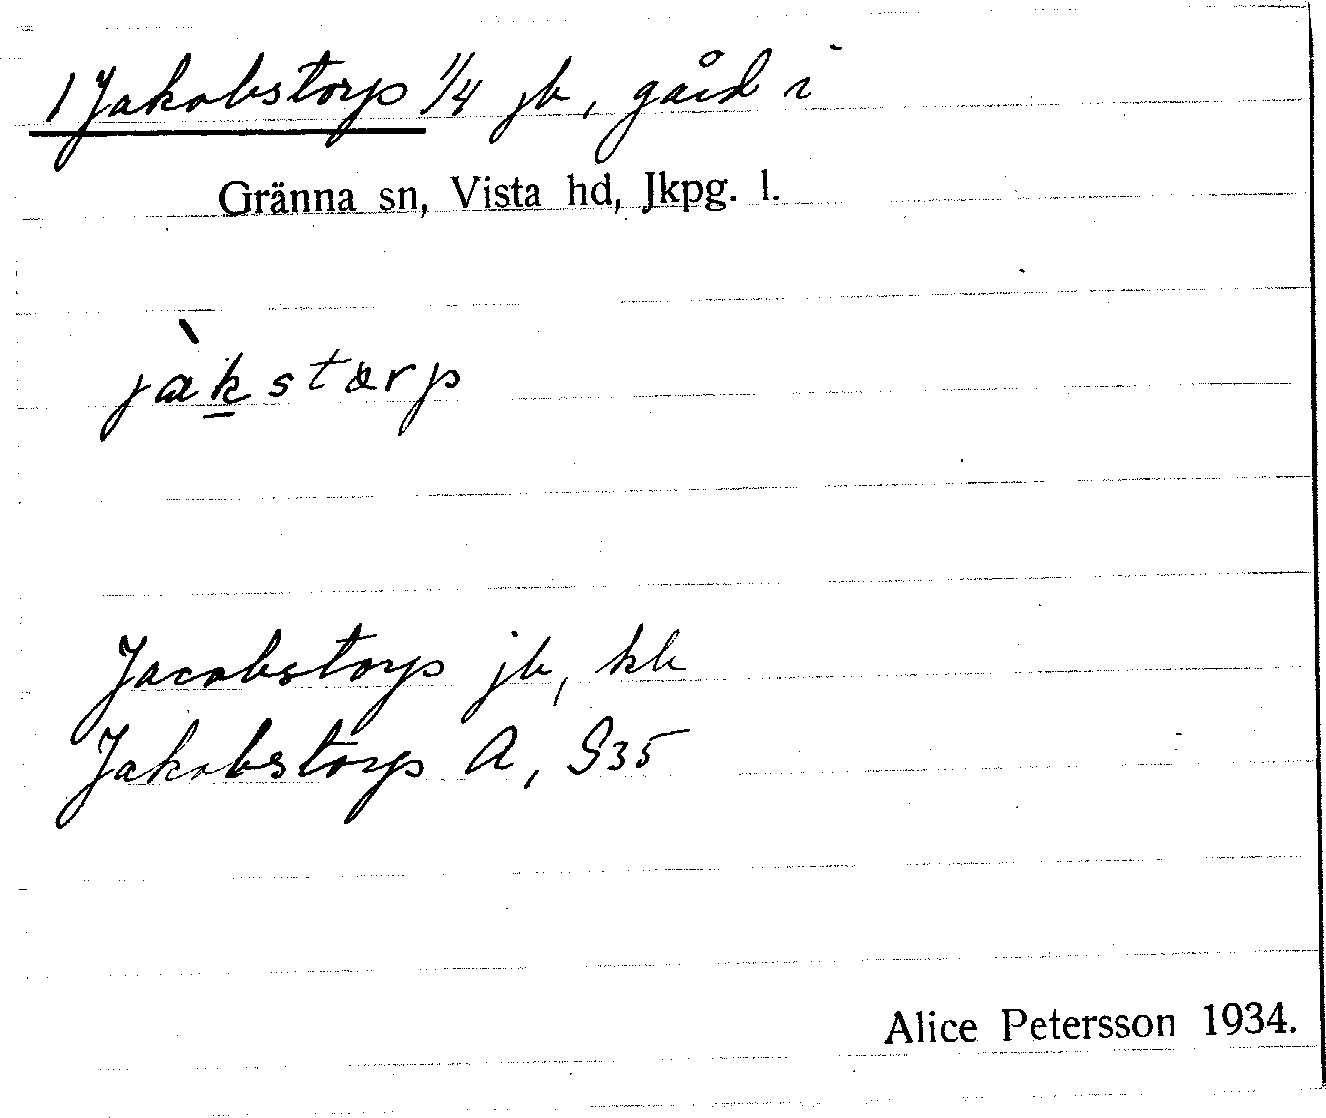 1 Jakobstorp 1/4 jb, gård i
Gränna sn, Vista hd, Jkpg. l.
jàkstærp
Jacobstorp jb, kb
Jakobstorp A, S35
Alice Petersson 1934.